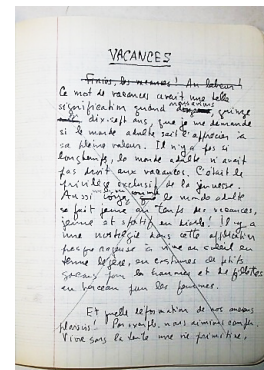 VACANCES
Finies, les vacances ! Au labeur !
Ce mot de vacances avait une telle
signification quand nous avions quinze
dix-sept ans, que je me demande
si le monde adulte sait l'apprécier à
sa pleine valeur. Il n'y a pas si
longtemps, le monde adulte n'avait
pas droit aux vacances. C'était le
privilège exclusif de la jeunesse.
Aussi le monde adulte
se fait jeune au temps des vacances,
jeune et sportif en diable ! Il y a
une nostalgie dans cette application
à vivre au soleil en
tenue légère, en costumes de petits
garçons pour les hommes et de fillettes
au berceau pour les femmes.
Et quelle déformation de nos anciens
plaisirs ! Par exemple, nous aimions camper.
Vivre sous la tente une vie primitive,